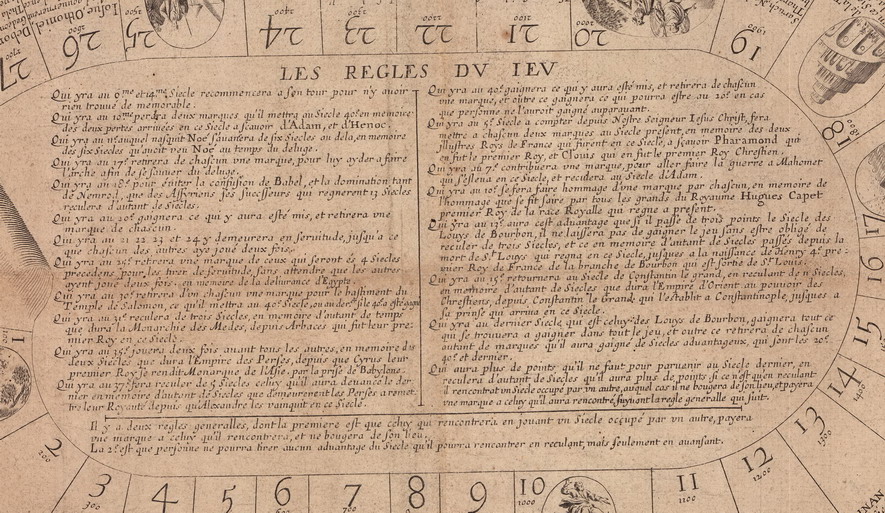 LES REGLES DV IEV
Qui yra au 6me et 14me Siecle recommencera a son tour pour n'y avoir
rien trouué de memorable.
Qui yra au 10me perdra deux marques qu'il mettra au Siecle 40e en memoire
des deux pertes arriuées en ce Siecle a scauoir d'Adam, et d'Henoc.
Qui yra au 11e auquel nasquit Noé s'auancera de six Siecles au dela, en memoire
des six Siecles qu'auoit veu Noé au temps du deluge.
Qui yra au 17e retirera de chascun vne marque, pour luy ayder a faire
l'arche afin de se sauuer du deluge.
Qui yra au 18e pour euiter la confusion de Babel, et la domination tant
de Nemrod, que des Assyriens ses successeurs qui regnerent 13 Siecles
reculera d'autant de Siecles.
Qui yra au 20e gaignera ce qui y aura esté mis, et retirera vne
marque de chascun.
Qui yra au 21 22 23 et 24 y demeurera en seruitude, jusqu'a ce
que chascun des autres ayt joué deux fois.
Qui yra au retirera vne marque de ceux qui seront és 4 Siecles
precedens, pour les tirer de seruitude, sans attendre que les autres
ayent joué deux fois, en memoire de la deliurance d'Egypte.
Qui yra au 30e retirera d'vn chascun vne marque pour le bastiment du
Temple de Salomon, ce qu'il mettra au 40e Siecle, ou au der. si le 40e a esté gaigné
Qui yra au 31e reculera de trois Siecles, en memoire d'autant de temps
que dura la Monarchie des Medes, depuis Arbaces qui fut leur pre-
mier Roy en ce Siecle.
Qui yra au 35e jouera deux fois auant tous les autres, en memoire des
deux Siecles que dura l'Empire des Perses, depuis que Cyrus leur
premier Roy se rendit Monarque de l'Asie, par la prise de Babylone.
Qui yra au 37e fera reculer de 5 Siecles celuy qu'il aura deuancé le der-
nier en memoire d'autant de Siecles que demeurerent les Perses a remet-
tre leur Royauté depuis qu'Alexandre les vainquit en ce Siecle.
Qui yra au 40e gaignera ce qui y aura esté mis, et retirera de chascun
vne marque, et outre ce gaignera ce qui pourra estre au 20e en cas
que personne ne l'auroit gaigné auparauant.
Qui yra au 5e Siecle a compter depuis Nostre Seigneur Iesus Christ, fera
mettre a chascun deux marques au Siecle present, en memoire des deux
illustres Roys de France qui furent en ce Siecle, a sçauoir Pharamond qui
en fut le premier Roy, et Clouis qui en fut le premier Roy Chrestien.
Qui yra au 7e contribuera vne marque, pour aller faire la guerre a Mahomet
qui s'esleua en ce Siecle, et reculera au Siecle d'Adam.
Qui yra au 10e se fera faire hommage d'vne marque par chascun, en memoire de
l'hommage que se fit faire par tous les grands du Royaume Hugues Capet
premier Roy de la race Royalle qui regne a present.
Qui yra au 13e aura cest aduantage que si il passe de trois points le Siecle des
Louys de Bourbon, il ne laissera pas de gaigner le jeu sans estre obligé de
reculer de trois Siecles, et ce en memoire d'autant de Siecles passés depuis la
mort de St. Louys qui regna en ce Siecle, jusques a la naissance de Henry 4e pre-
mier Roy de France de la branche de Bourbon qui est sortie de St. Louis.
Qui yra au 15e retournera au Siecle de Constantin le grand, en reculant de 11 Siecles,
en memoire d'autant de Siecles que dura l'Empire d'Orient au pouuoir des
Chrestiens, depuis Constantin le Grand, qui l'establit a Constantinople, jusques a
sa prinse qui arriua en ce Siecle.
Qui yra au dernier Siecle, qui est celuy des Louys de Bourbon, gaignera tout ce
qui se trouuera a gaigner dans tout le jeu, et outre ce retirera de chascun
autant de marques qu'il aura gaigné de Siecles aduantageux, qui sont les 20e
40e et dernier.
Qui aura plus de points qu'il ne faut pour paruenir au Siecle dernier, en
reculera d'autant de Siecles qu'il aura plus de points si ce n'est qu'en reculant
il rencontrat vn Siecle occupé par vn autre, auquel cas il ne bougera de son lieu, et payera
vne marque a celuy qu'il aura rencontré, suyuant la regle generalle qui suit.
Il y a deux regles generalles, dont la premiere est que celuy qui rencontrera en jouant vn Siecle occupé par vn autre, payera
vne marque a celuy qu'il rencontrera, et ne bougera de son lieu.
La 2e est que personne ne pourra tirer aucun aduantage du Siecle qu'il pourra rencontrer en reculant, mais seulement en auansant.
1
2
200
3
300
4
5
6
7
8
9
10
1000
11
1100
12
1200
13
1300
14
1400
15
16
17
18
19
1900
20
21
2100
22
2200
23
2300
24
2400
25
26
27